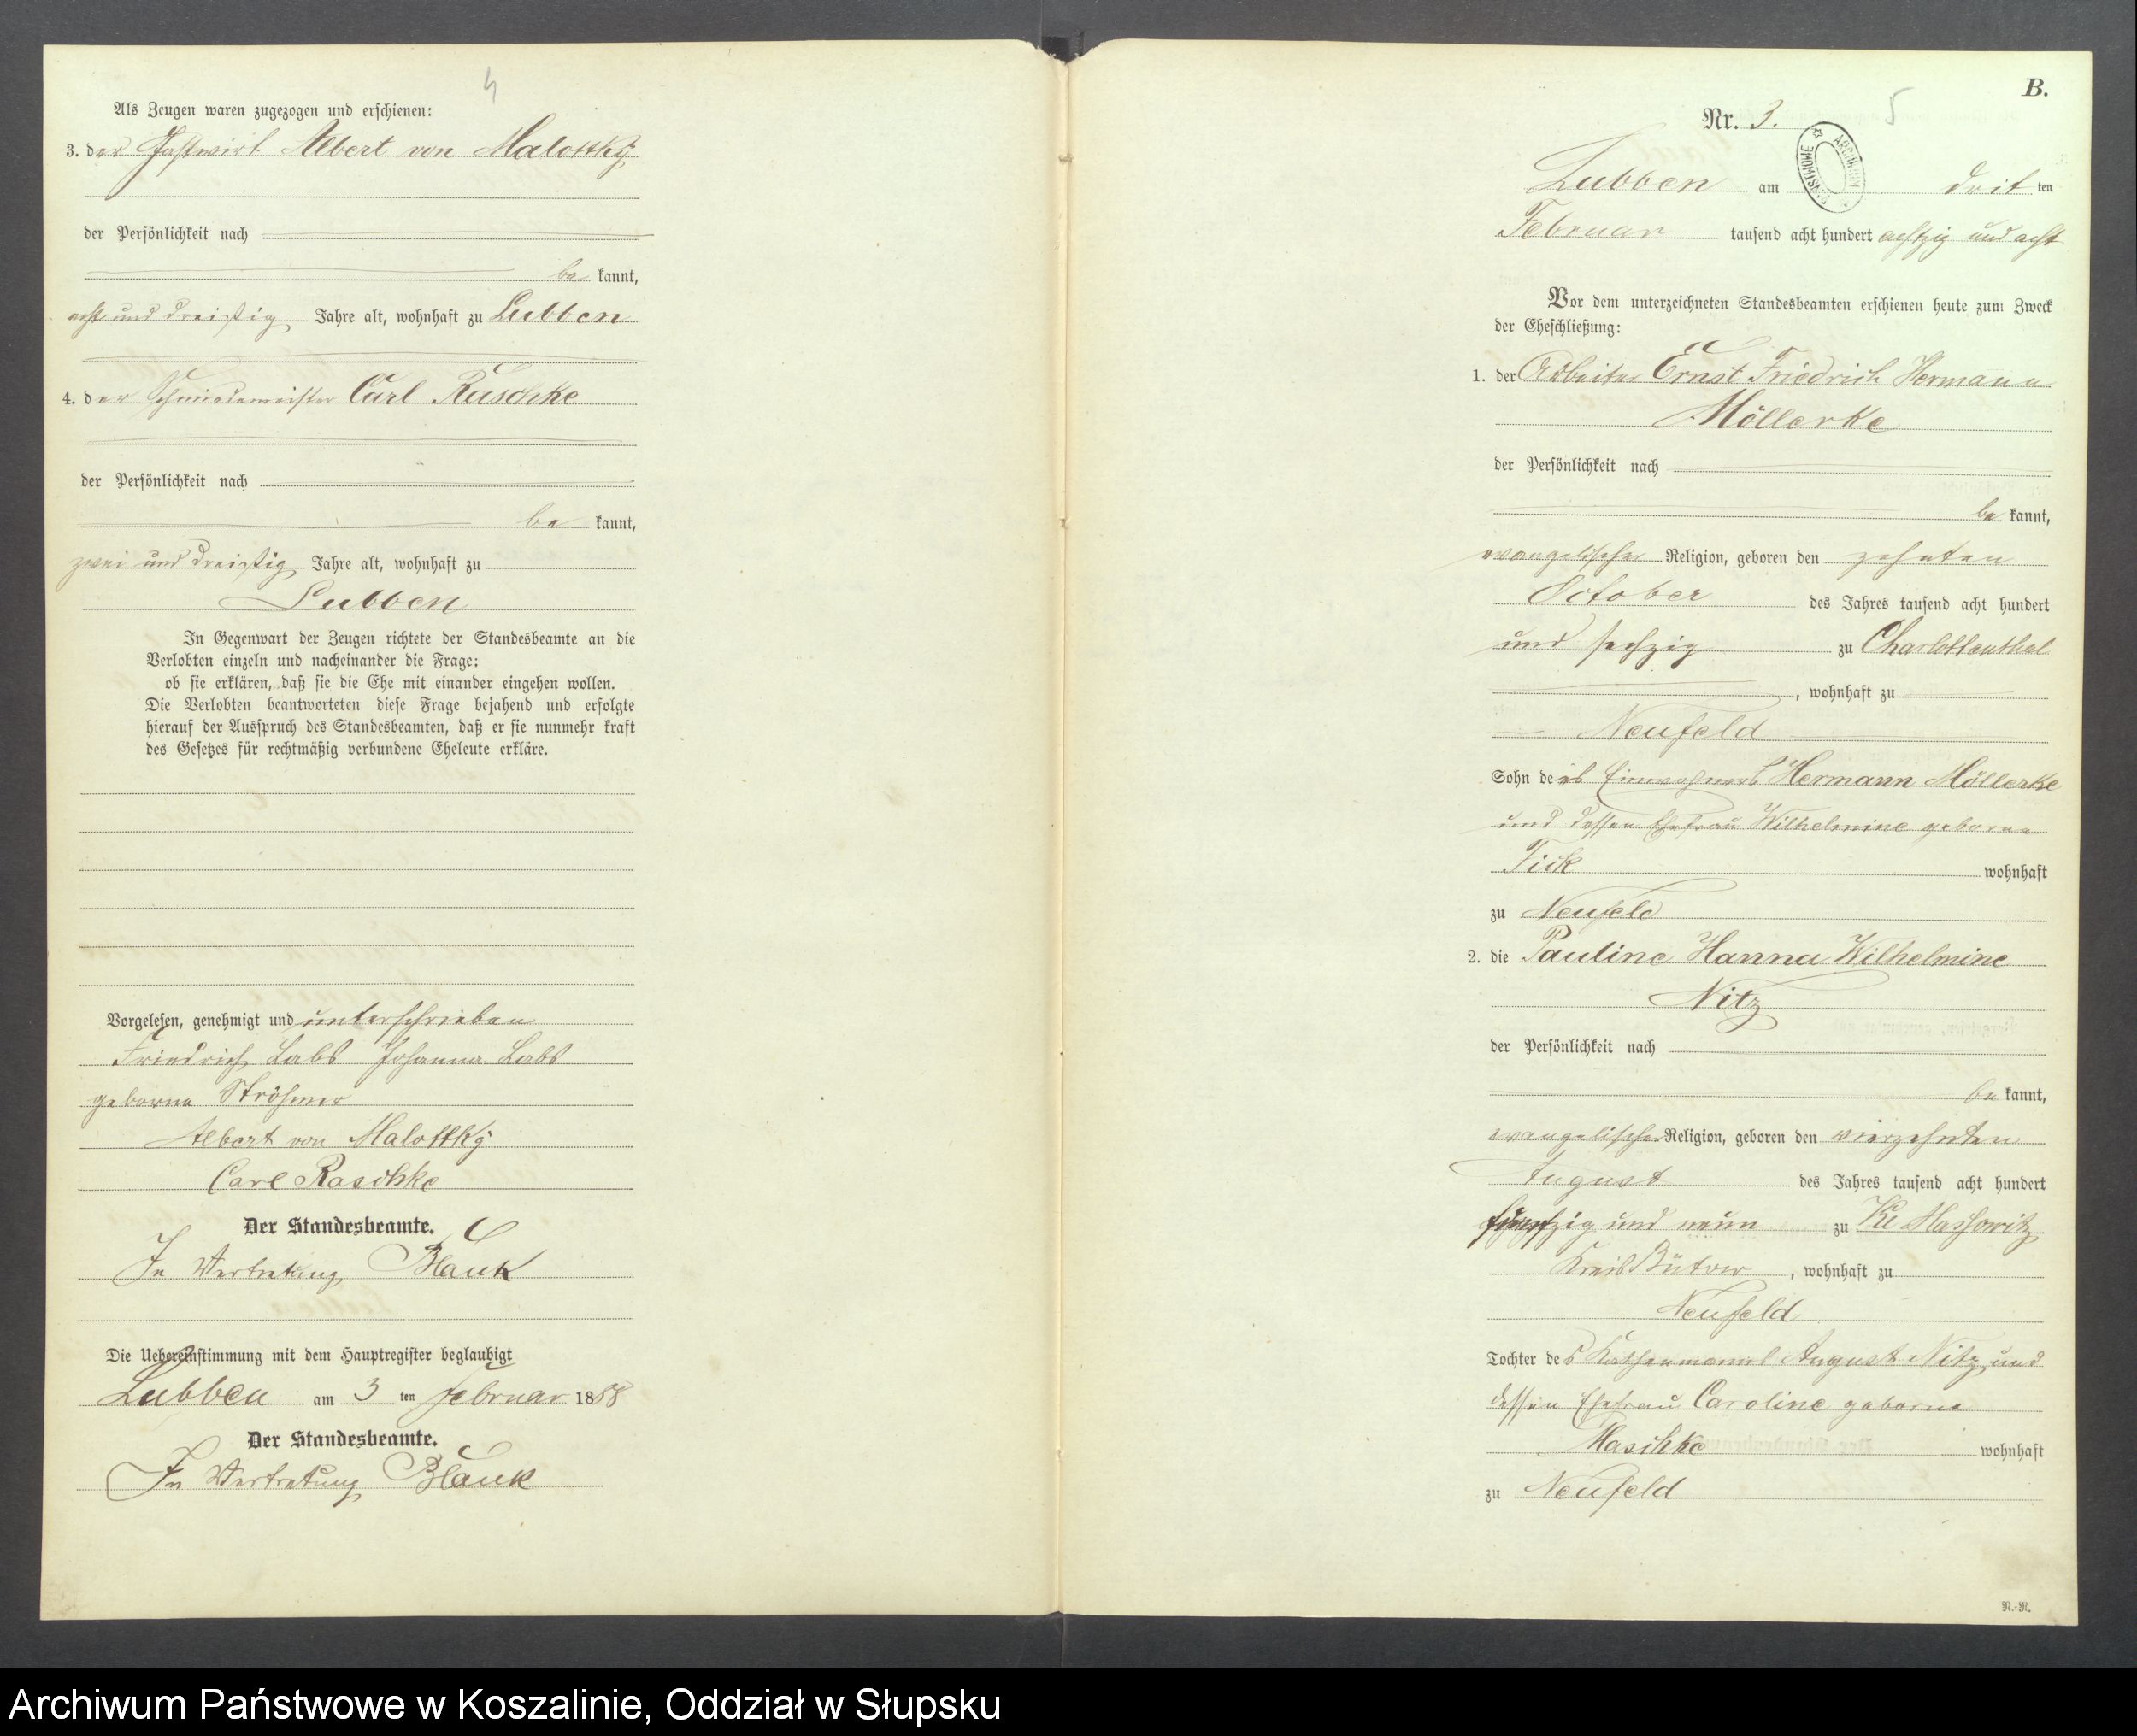 4
Als Zeugen waren zugezogen und erschienen:
3. der Gastwirt Albert von Malottky
der Persönlichkeit nach
be kannt,
acht und dreißig Jahre alt, wohnhaft zu Lubben
4. der Schmiedemeister Carl Raschke
der Persönlichkeit nach
be kannt,
zwei und dreißig Jahre alt, wohnhaft zu
Lubben
In Gegenwart der Zeugen richtete der Standesbeamte an die
Verlobten einzeln und nacheinander die Frage:
ob sie erklären, daß sie die Ehe mit einander eingehen wollen.
Die Verlobten beantworteten diese Frage bejahend und erfolgte
hierauf der Ausspruch des Standesbeamten, daß er sie nunmehr kraft
des Gesetzes für rechtmäßig verbundene Eheleute erkläre.
Vorgelesen, genehmigt und unterschrieben
Friedrich Labs Johanna Labs
geborne Ströhmer
Albert von Malottky
Carl Raschke
Der Standesbeamte.
In Vertretung Blauk
Die Uebereinstimmung mit dem Hauptregister beglaubigt
Lubben am 3 ten Februar 1888
Der Standesbeamte.
In Vertretung Blauk
B.
5
Nr. 3.
ARCHIWUM PAŃSTWOWE
Lubben am drit ten
Februar tausend acht hundert achtzig und acht
Vor dem unterzeichneten Standesbeamten erschienen heute zum Zweck
der Eheschließung:
1. der Arbeiter Ernst Friedrich Hermann
Möllerke
der Persönlichkeit nach
be kannt,
evangelischer Religion, geboren den zehnten
October des Jahres tausend acht hundert
und sechzig zu Charlottenthal
, wohnhaft zu
Neufeld
Sohn des Einwohners Hermann Möllerke
und dessen Ehefrau Wilhelmine geborne
Tick wohnhaft
zu Neufeld
2. die Pauline Hanna Wilhelmine
Nitz
der Persönlichkeit nach
be kannt,
evangelischer Religion, geboren den vierzehnten
August des Jahres tausend acht hundert
fünfzig und neun zu Kl Massowitz
Kreis Bütow , wohnhaft zu
Neufeld
Tochter des Kathenmanns August Nitz und
dessen Ehefrau Caroline geborne
Maschke wohnhaft
zu Neufeld
N.-R.
Archiwum Państwowe w Koszalinie, Oddział w Słupsku